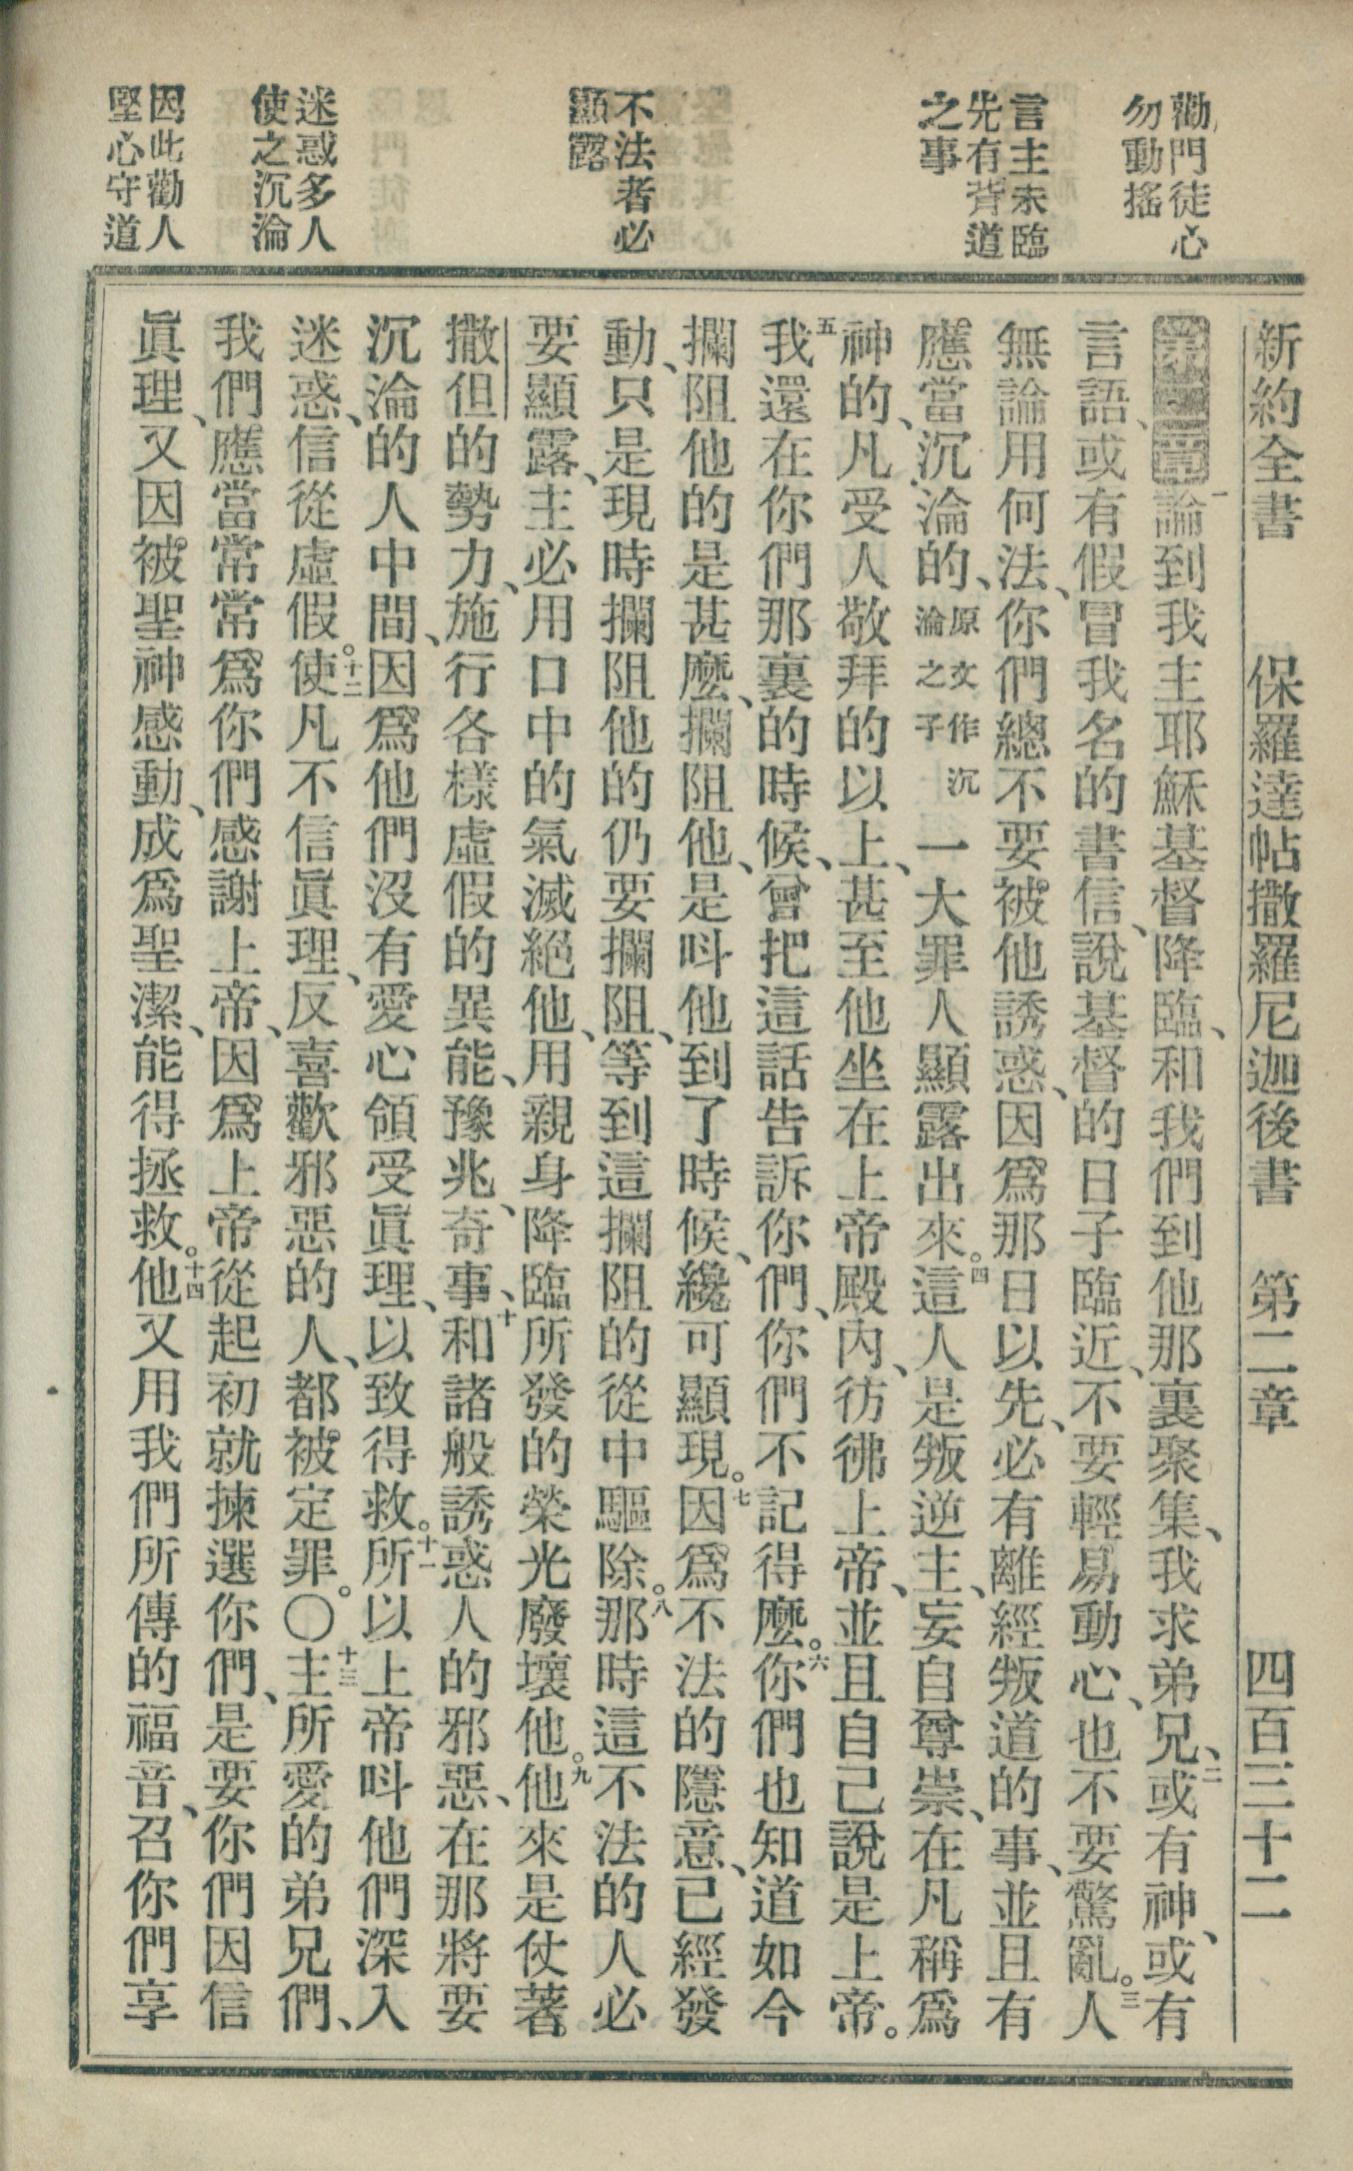 新約全書 保羅達帖撒羅尼迦後書 第二章 四百三十二
勸門徒心
勿動搖
言主未臨
先有背道
之事
不法者必
顯露
迷惑多人
使之沉淪
因此勸人
堅心守道
第二章 一論到我主耶穌基督降臨、和我們到他那裏聚集、我求弟兄、二或有神、或有
言語、或有假冒我名的書信、說基督的日子臨近、不要輕易動心、也不要驚亂。三人
無論用何法、你們總不要被他誘惑、因爲那日以先、必有離經叛道的事、並且有
應當沉淪的、原文作沉淪之子一大罪人顯露出來。四這人是叛逆主、妄自尊崇、在凡稱爲
神的、凡受人敬拜的以上、甚至他坐在上帝殿內、彷彿上帝、並且自己說是上帝。
五我還在你們那裏的時候、曾把這話告訴你們、你們不記得麼。六你們也知道如今
攔阻他的是甚麼、攔阻他、是呌他到了時候、纔可顯現。七因爲不法的隱意、已經發
動、只是現時攔阻他的仍要攔阻、等到這攔阻的從中驅除。八那時這不法的人必
要顯露、主必用口中的氣滅絕他、用親身降臨所發的榮光廢壞他。九他來是仗著
撒但的勢力、施行各樣虛假的異能、豫兆、奇事、十和諸般誘惑人的邪惡、在那將要
沉淪的人中間、因爲他們沒有愛心領受眞理、以致得救。十一所以上帝呌他們深入
迷惑、信從虛假。十二使凡不信眞理、反喜歡邪惡的人、都被定罪。〇十三主所愛的弟兄們、
我們應當常常爲你們感謝上帝、因爲上帝從起初就揀選你們、是要你們因信
眞理、又因被聖神感動、成爲聖潔、能得拯救。十四他又用我們所傳的福音、召你們享